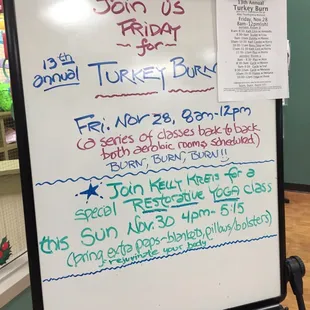 Join us
FRIDAY
~for~
13th
annual TURKEY BURN
FRI. NOV 28, 8am-12pm
(a series of classes back to back
both aerobic rooms scheduled)
BURN, BURN, BURN!!
★ JOIN KELLY KREIS for a
special RESTORATIVE YOGA class
this SUN NOV. 30 4pm-5:15
(bring extra props~blankets, pillows/bolsters)
rejuvinate your body
13th Annual
Turkey Burn
Friday, Nov. 28
8am-12(noon)!!